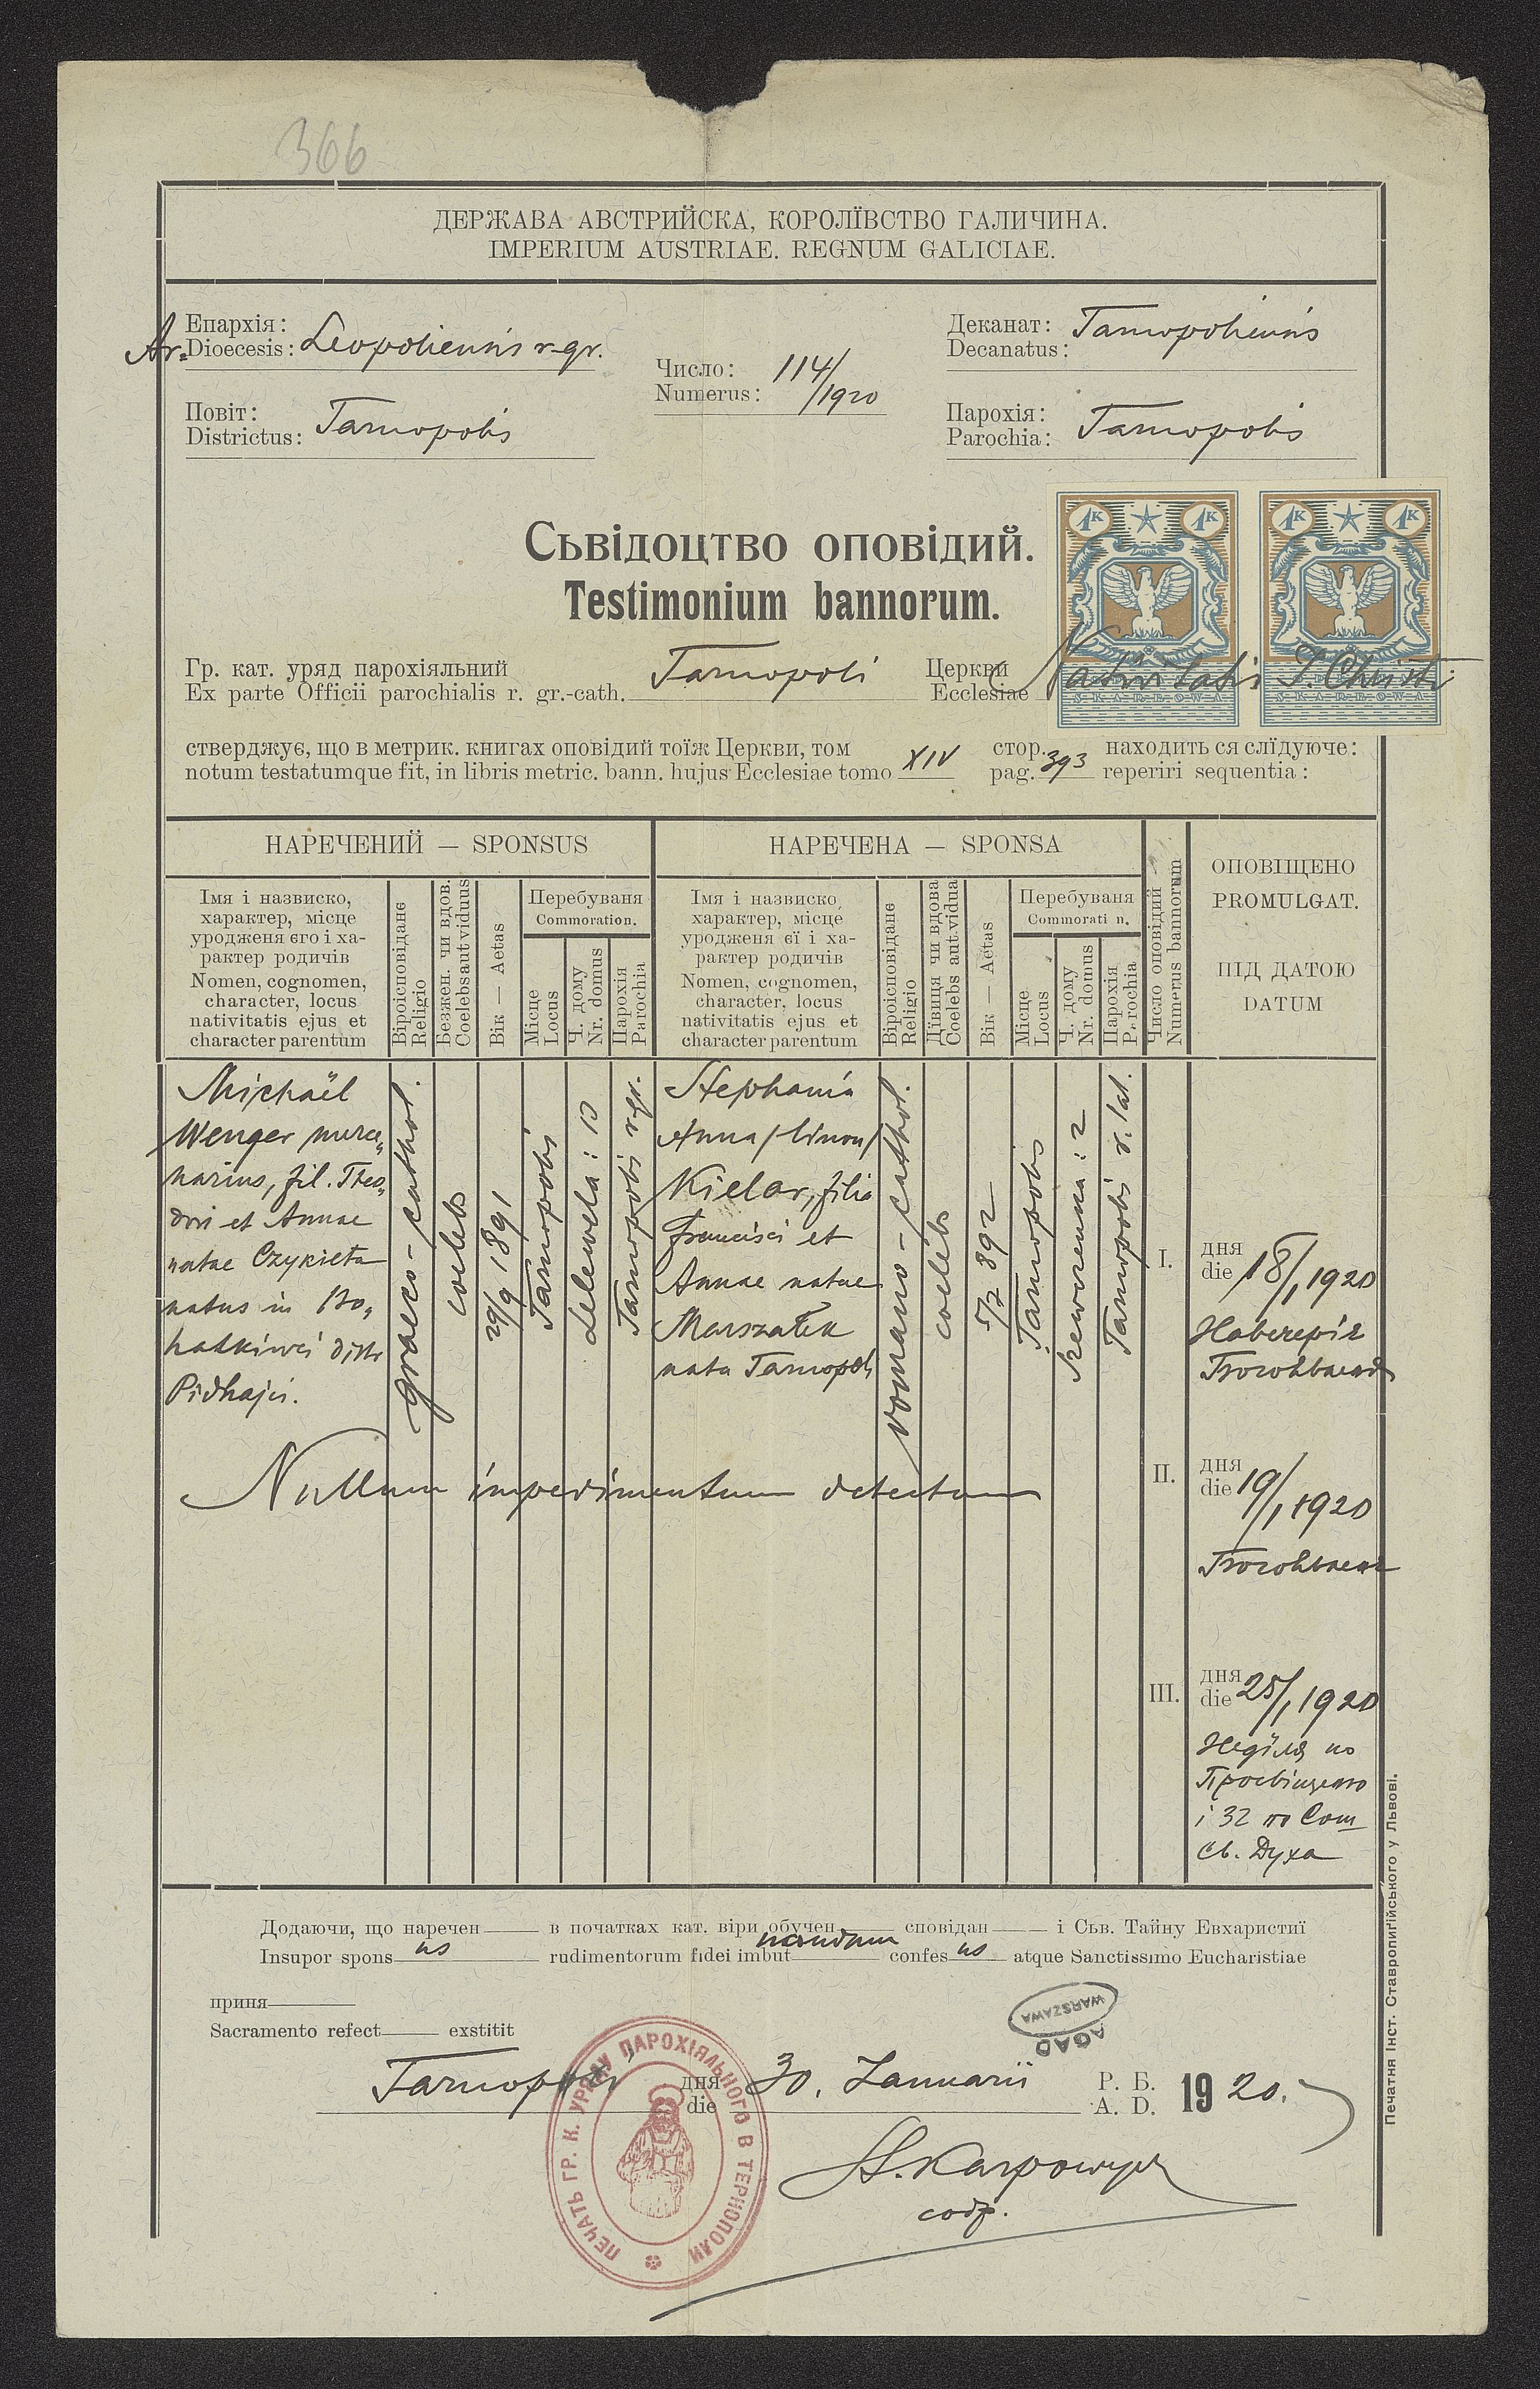 366
ДЕРЖАВА АВСТРИЙСКА, КОРОЛЇВСТВО ГАЛИЧИНА.
IMPERIUM AUSTRIAE. REGNUM GALICIAE.
Епархія:
Ar- Dioecesis: Leopoliensis r. gr.
Деканат:
Decanatus: Tarnopoliensis
Число:
Numerus: 114/1920
Повіт:
Districtus: Tarnopolis
Парохія:
Parochia: Tarnopolis
1K 1K 1K 1K
Сьвідоцтво оповідий.
Testimonium bannorum.
Гр. кат. уряд парохіяльний
Ex parte Officii parochialis r. gr.-cath. Tarnopoli
Церкви
Ecclesiae Nativitatis I. Christi
SKARBOWA SKARBOWA
стверджує, що в метрик. книгах оповідий тоїж Церкви, том стор. находить ся слїдуюче:
notum testatumque fit, in libris metric. bann. hujus Ecclesiae tomo XIV pag. 393 reperiri sequentia:
НАРЕЧЕНИЙ — SPONSUS
НАРЕЧЕНА — SPONSA
Імя і назвиско,
характер, місце
уродженя єго і ха-
рактер родичів
Nomen, cognomen,
character, locus
nativitatis ejus et
character parentum
Віроісповіданє
Religio
Безжен. чи вдов.
Coelebs aut viduus
Вік — Aetas
Перебуваня
Commoration.
Місце
Locus
Ч. дому
Nr. domus
Парохія
Parochia
Імя і назвиско,
характер, місце
уродженя єї і ха-
рактер родичів
Nomen, cognomen,
character, locus
nativitatis ejus et
character parentum
Віроісповіданє
Religio
Дівиця чи вдова
Coelebs aut vidua
Вік — Aetas
Перебуваня
Commorati n.
Місце
Locus
Ч. дому
Nr. domus
Парохія
Parochia
Число оповідий
Numerus bannorum
ОПОВІЩЕНО
PROMULGAT.
ПІД ДАТОЮ
DATUM
Michaël
Wenger merce„
narius, fil. Theo„
dori et Annae
natae Czykieta
natus in Bo„
hatkiwci distr
Pidhajci.
graeco-cathol.
coelebs
29/9 1891
Tarnopolis
Lelewela: 13
Tarnopolis r. gr.
Stephania
Anna
Kielar, filia
Francisci et
Annae natae
Marszałek
nata Tarnopoli
romano-cathol.
coelebs
5/7 892
Tarnopolis
Tarnopolis r. lat.
I.
дня
die 18/1 1920
Навечеріє
Богоявленя
II.
дня
die 19/1 1920
Богоявленє
III.
дня
die 25/1 1920
Недїля по
Просвіщенію
і 32 по Сош
св. Духа
Nullum impedimentum detectum
Додаючи, що наречен в початках кат. віри обучен сповідан і Сьв. Тайну Евхаристиї
Insupor spons us rudimentorum fidei imbut confes us atque Sanctissimo Eucharistiae
приня
Sacramento refect exstitit
AGAD
WARSZAWA
Tarnopoli
дня
die 30. Januarii
Р. Б.
A. D. 1920.
ПЕЧАТЬ ГР. К. УРЯДУ ПАРОХІЯЛЬНОГО В ТЕРНОПОЛИ
Karpowycz
Печатня Інст. Ставропигійського у Львові.